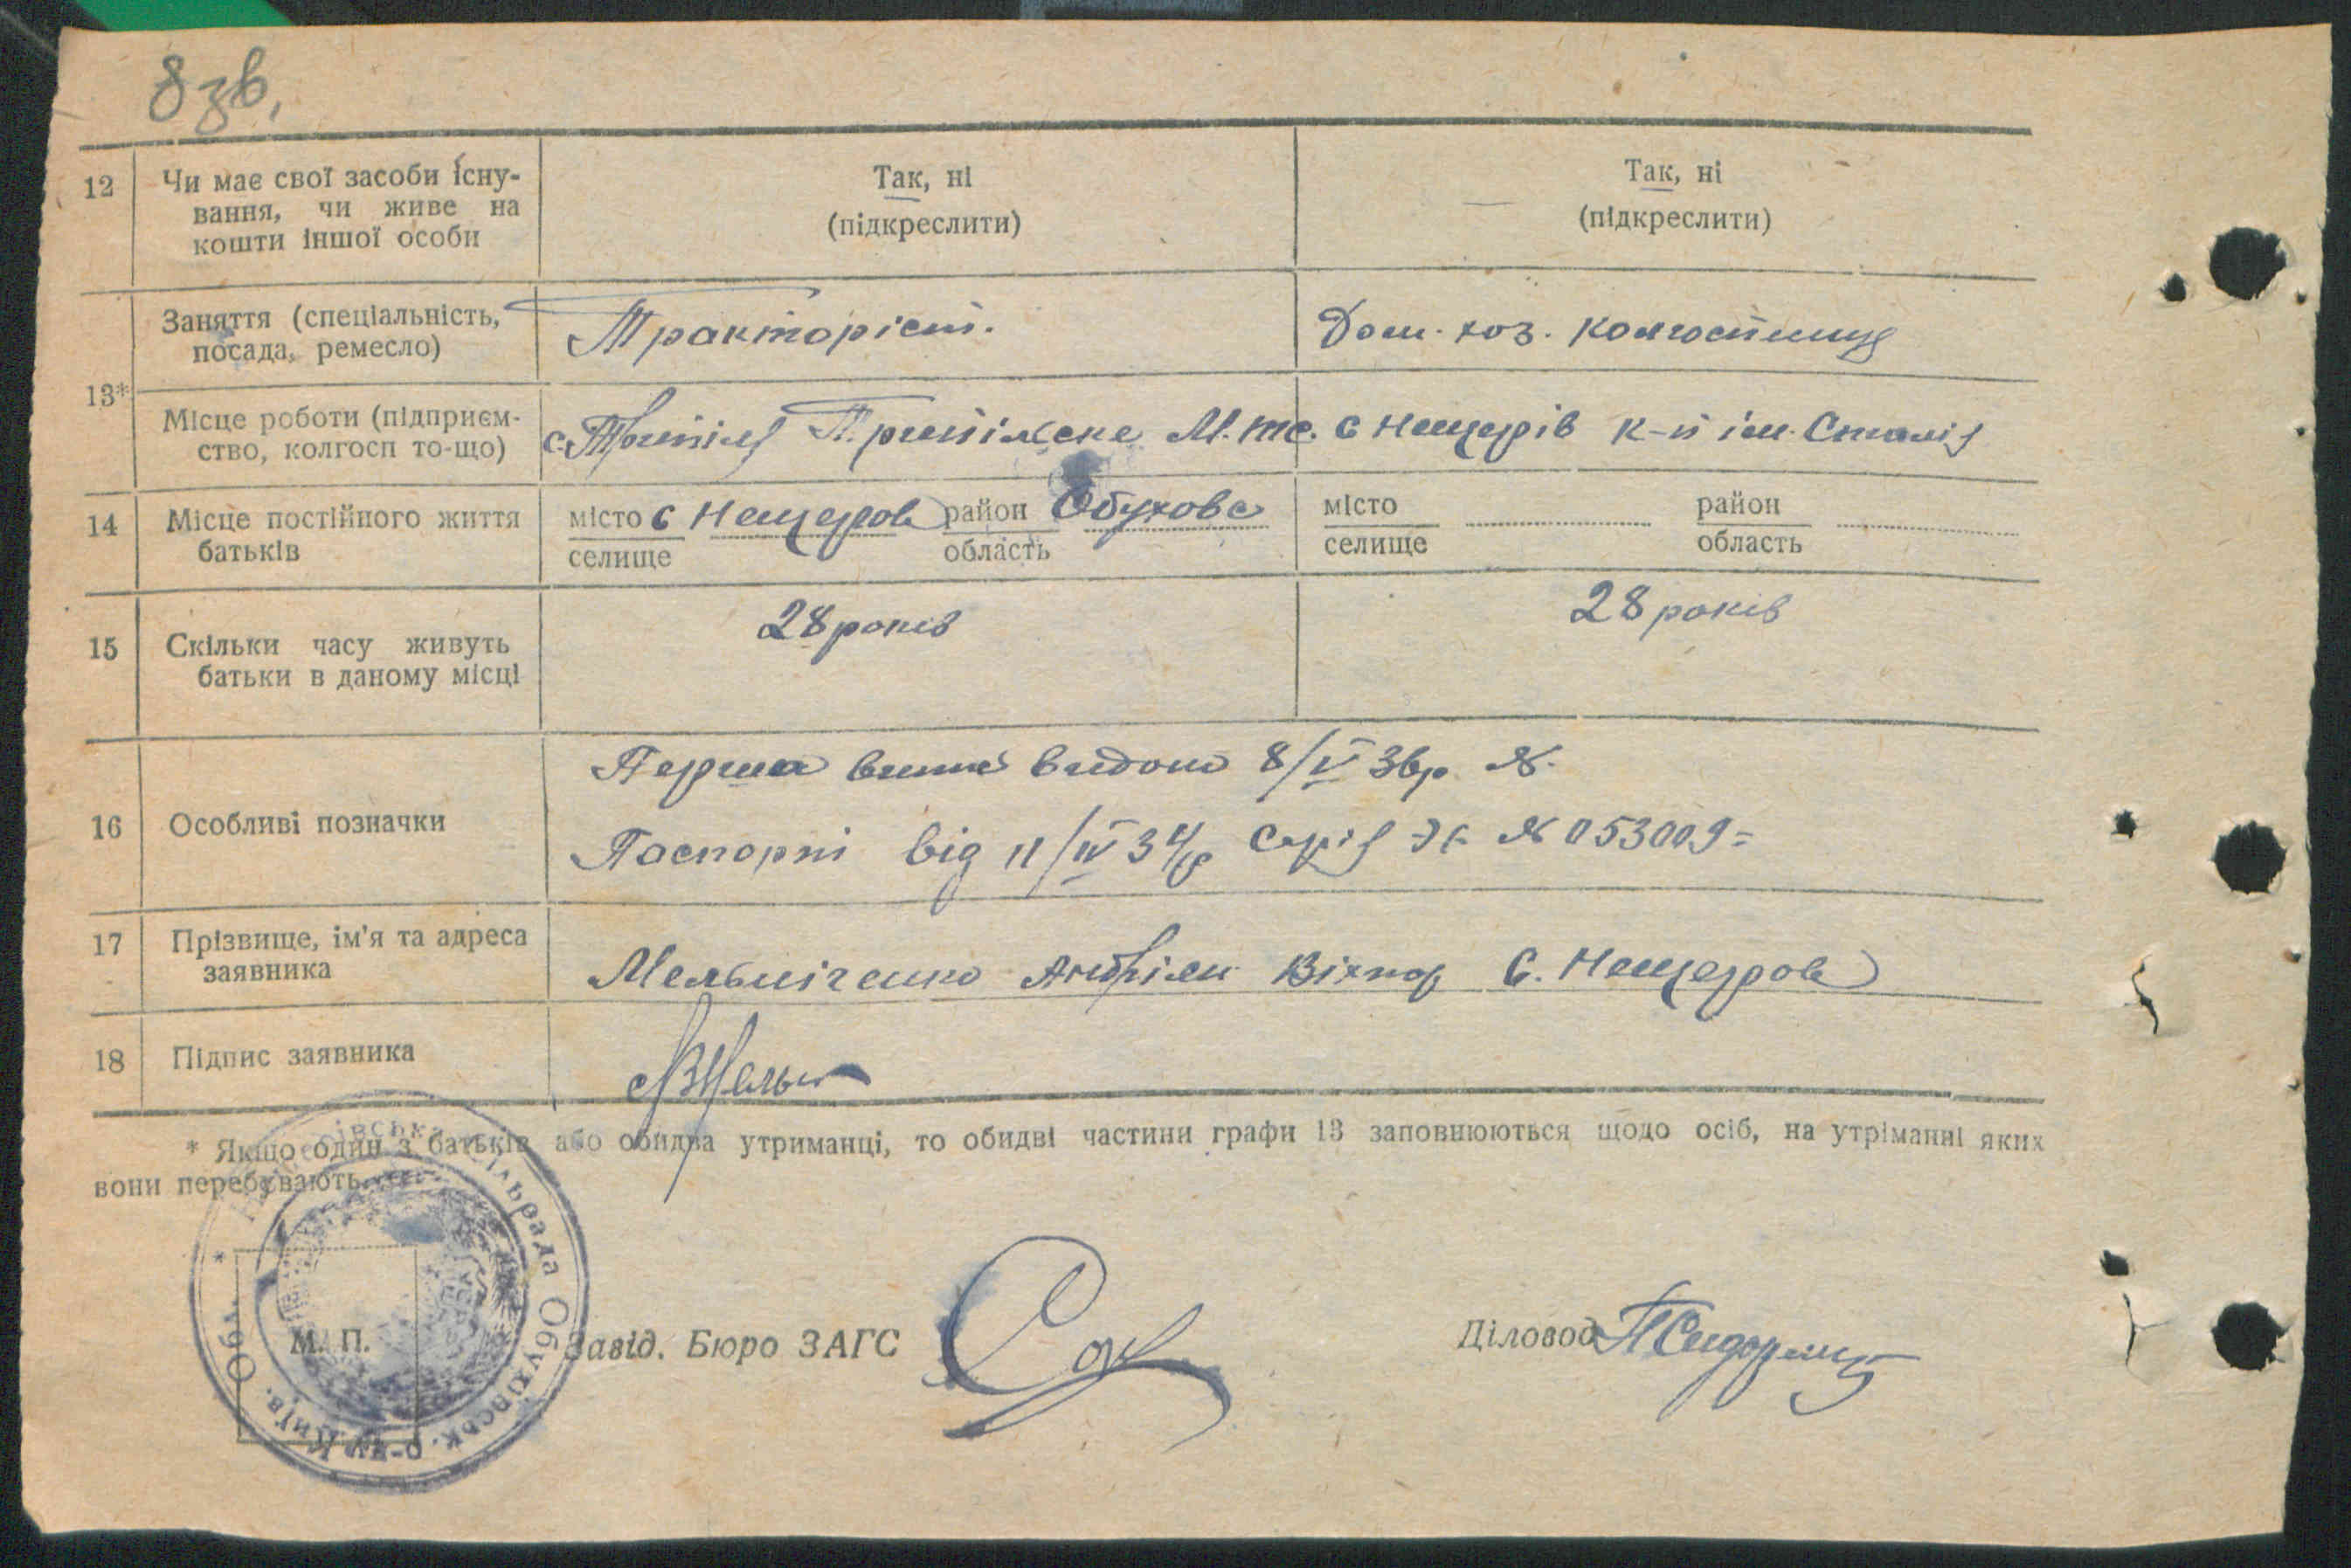 8 зв,
12 Чи має свої засоби існу-
вання, чи живе на
кошти іншої особи
Так, ні
(підкреслити)
Так, ні
(підкреслити)
13*
Заняття (спеціальність,
посада, ремесло)
Тракторіст.
Дом. хоз. колгоспниця
Місце роботи (підприєм-
ство, колгосп то-що)
с. Трипіля Трипілске М.тс.
с Нещерів к-п ім. Сталі
14 Місце постійного життя
батьків
місто с Нещеров район Обухове
селище область
місто район
селище область
15 Скільки часу живуть
батьки в даному місці
28 років
28 років
16 Особливі позначки
Перша видано 8/V 36р. №.
Паспорт від 11/IV 34р Серія № 053009
17 Прізвище, ім'я та адреса
заявника
Мельніченко Андріян Віктор С. Нещеров
18 Підпис заявника
* Якщо один з батьків або обидва утриманці, то обидві частини графи 13 заповнюються щодо осіб, на утріманні яких
вони перебувають.
сільрада Обухівськ. р-ну Київ. Обл.
М. П.
Завід. Бюро ЗАГС
Діловод